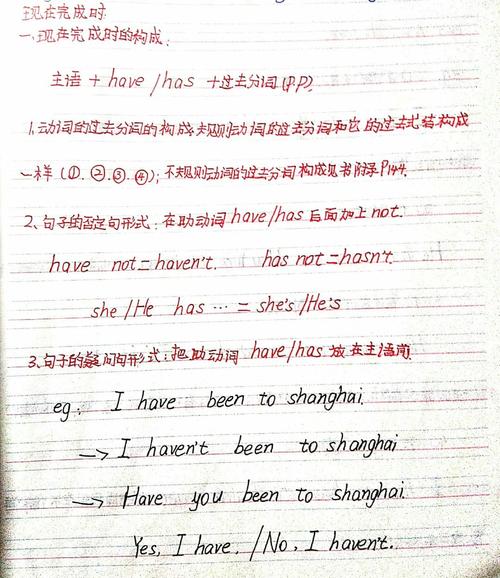 现在完成时
一、现在完成时的构成:
主语 + have /has +过去分词(P.P)
1、动词的过去分词的构成:规则动词的过去分词和它的过去式结构成
一样(①.②.③.④);不规则动词的过去分词构成见书附录P144.
2、句子的否定句形式:在助动词have/has后面加上not.
have not=haven't. has not=hasn't
she /He has … = she's /He's
3、句子的疑问句形式:把助动词 have/has 放在主语前
eg: I have been to shanghai.
→ I haven't been to shanghai
→ Have you been to shanghai.
Yes, I have. /No, I haven't.